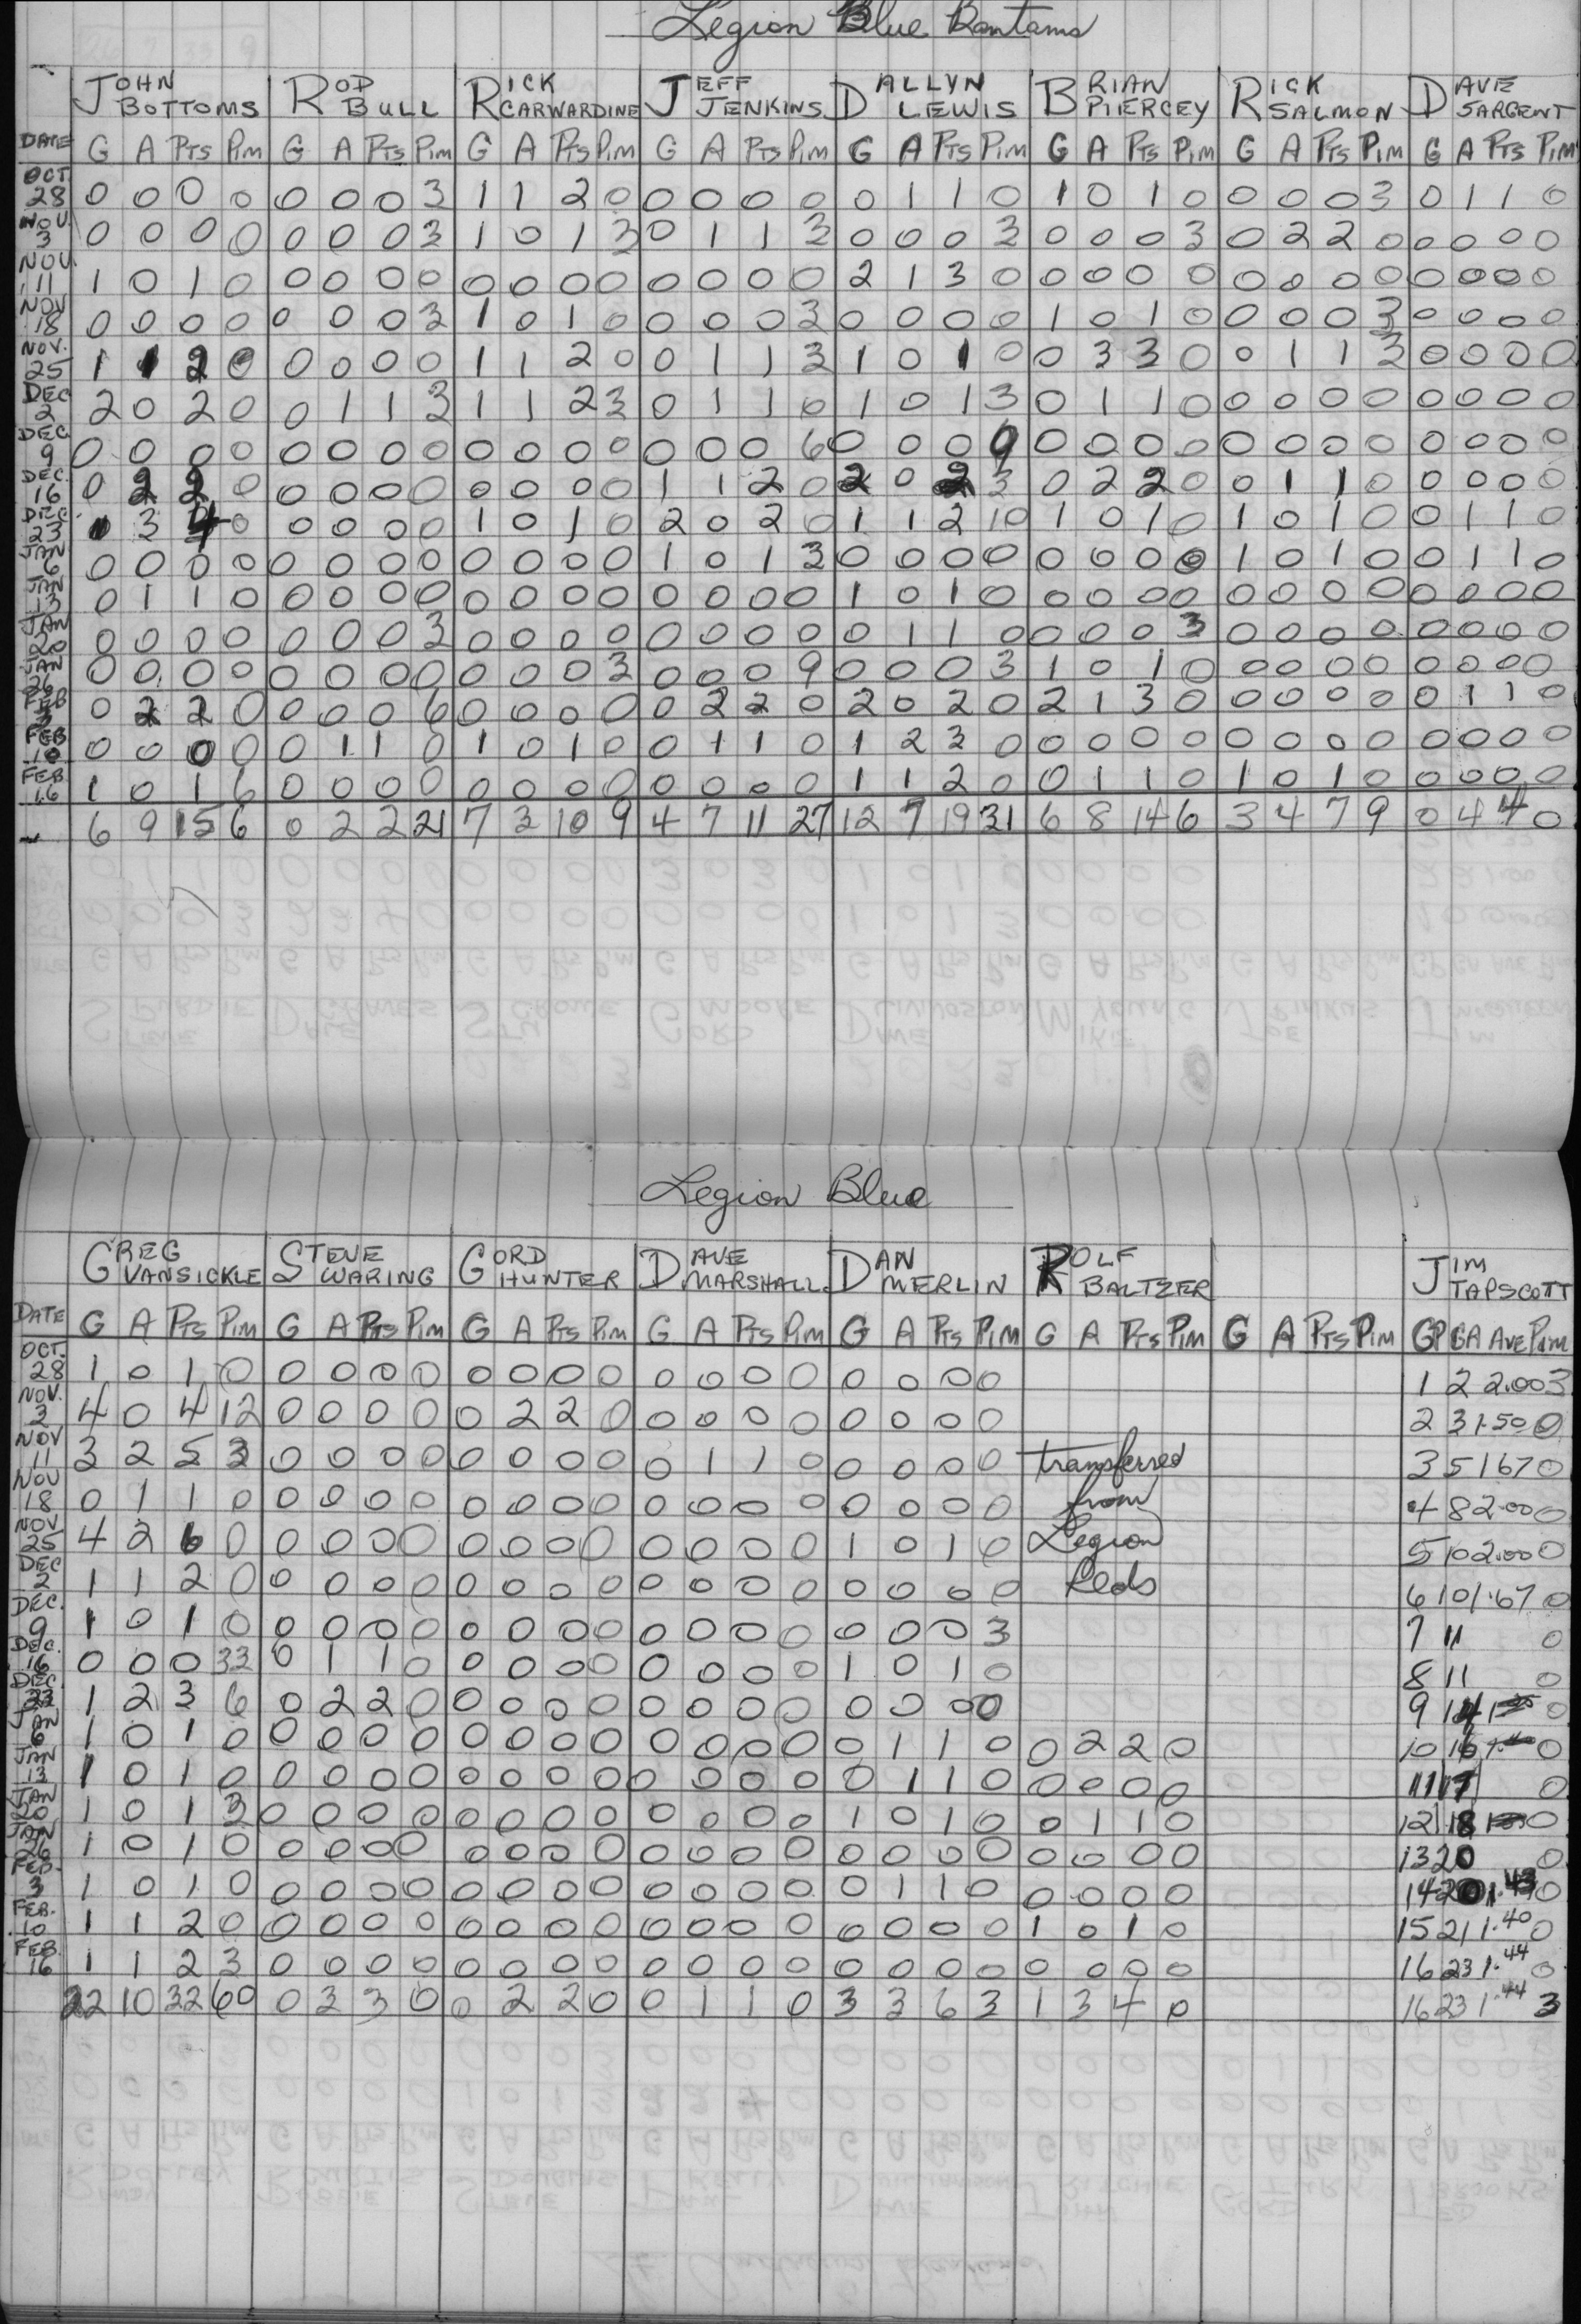 Legion Blue Bantams
JOHN BOTTOMS ROD BULL RICK CARWARDINE JEFF JENKINS DALLYN LEWIS BRIAN PIERCEY RICK SALMON DAVE SARGENT
DATE G A PTS PIM G A PTS PIM G A PTS PIM G A PTS PIM G A PTS PIM G A PTS PIM G A PTS PIM G A PTS PIM
OCT 28 0 0 0 0 0 0 0 3 1 1 2 0 0 0 0 0 0 1 1 0 1 0 1 0 0 0 0 3 0 1 1 0
NOV. 3 0 0 0 0 0 0 0 3 1 0 1 3 0 1 1 3 0 0 0 3 0 0 0 3 0 2 2 0 0 0 0 0
NOV 11 1 0 1 0 0 0 0 0 0 0 0 0 0 0 0 0 2 1 3 0 0 0 0 0 0 0 0 0 0 0 0 0
NOV 18 0 0 0 0 0 0 0 3 1 0 1 0 0 0 0 3 0 0 0 0 1 0 1 0 0 0 0 3 0 0 0 0
NOV. 25 1 1 2 0 0 0 0 0 1 1 2 0 0 1 1 3 1 0 1 0 0 3 3 0 0 1 1 3 0 0 0 0
DEC 2 2 0 2 0 0 1 1 3 1 1 2 3 0 1 1 0 1 0 1 3 0 1 1 0 0 0 0 0 0 0 0 0
DEC. 9 0 0 0 0 0 0 0 0 0 0 0 0 0 0 0 6 0 0 0 9 0 0 0 0 0 0 0 0 0 0 0 0
DEC. 16 0 2 2 0 0 0 0 0 0 0 0 0 1 1 2 0 2 0 2 3 0 2 2 0 0 1 1 0 0 0 0 0
DEC 23 1 3 4 0 0 0 0 0 1 0 1 0 2 0 2 0 1 1 2 10 1 0 1 0 1 0 1 0 0 1 1 0
JAN 6 0 0 0 0 0 0 0 0 0 0 0 0 1 0 1 3 0 0 0 0 0 0 0 0 1 0 1 0 0 1 1 0
JAN 13 0 1 1 0 0 0 0 0 0 0 0 0 0 0 0 0 1 0 1 0 0 0 0 0 0 0 0 0 0 0 0 0
JAN 20 0 0 0 0 0 0 0 3 0 0 0 0 0 0 0 0 0 1 1 0 0 0 0 3 0 0 0 0 0 0 0 0
JAN 26 0 0 0 0 0 0 0 0 0 0 0 3 0 0 0 9 0 0 0 3 1 0 1 0 0 0 0 0 0 0 0 0
FEB 3 0 2 2 0 0 0 0 6 0 0 0 0 0 2 2 0 2 0 2 0 2 1 3 0 0 0 0 0 0 1 1 0
FEB 10 0 0 0 0 0 1 1 0 1 0 1 0 0 1 1 0 1 2 3 0 0 0 0 0 0 0 0 0 0 0 0 0
FEB. 16 1 0 1 6 0 0 0 0 0 0 0 0 0 0 0 0 1 1 2 0 0 1 1 0 1 0 1 0 0 0 0 0
6 9 15 6 0 2 2 21 7 3 10 9 4 7 11 27 12 7 19 31 6 8 14 6 3 4 7 9 0 4 4 0
Legion Blue
GREG VANSICKLE STEVE WARING GORD HUNTER DAVE MARSHALL DAN MERLIN ROLF BALTZER JIM TAPSCOTT
DATE G A PTS PIM G A PTS PIM G A PTS PIM G A PTS PIM G A PTS PIM G A PTS PIM G A PTS PIM GP GA AVE PIM
OCT. 28 1 0 1 0 0 0 0 0 0 0 0 0 0 0 0 0 0 0 0 0 1 2 2.00 3
NOV. 3 4 0 4 12 0 0 0 0 0 2 2 0 0 0 0 0 0 0 0 0 2 3 1.50 0
NOV 11 3 2 5 3 0 0 0 0 0 0 0 0 0 1 1 0 0 0 0 0 transferred 3 5 1 67 0
NOV 18 0 1 1 0 0 0 0 0 0 0 0 0 0 0 0 0 0 0 0 0 from 4 8 2.00 0
NOV 25 4 2 6 0 0 0 0 0 0 0 0 0 0 0 0 0 1 0 1 0 Legion 5 10 2.00 0
DEC 2 1 1 2 0 0 0 0 0 0 0 0 0 0 0 0 0 0 0 0 0 Reds 6 10 1.67 0
DEC. 9 1 0 1 0 0 0 0 0 0 0 0 0 0 0 0 0 0 0 0 3 7 11 0
DEC. 16 0 0 0 33 0 1 1 0 0 0 0 0 0 0 0 0 1 0 1 0 8 11 0
DEC 23 1 2 3 6 0 2 2 0 0 0 0 0 0 0 0 0 0 0 0 0 9 14 0
JAN 6 1 0 1 0 0 0 0 0 0 0 0 0 0 0 0 0 0 1 1 0 0 2 2 0 10 16 0
JAN 13 1 0 1 0 0 0 0 0 0 0 0 0 0 0 0 0 0 1 1 0 0 0 0 0 11 17 0
JAN 20 1 0 1 3 0 0 0 0 0 0 0 0 0 0 0 0 1 0 1 0 0 1 1 0 12 18 0
JAN 26 1 0 1 0 0 0 0 0 0 0 0 0 0 0 0 0 0 0 0 0 0 0 0 0 13 20 0
FEB. 3 1 0 1 0 0 0 0 0 0 0 0 0 0 0 0 0 0 1 1 0 0 0 0 0 14 20 1.43 0
FEB. 10 1 1 2 0 0 0 0 0 0 0 0 0 0 0 0 0 0 0 0 0 1 0 1 0 15 21 1.40 0
FEB. 16 1 1 2 3 0 0 0 0 0 0 0 0 0 0 0 0 0 0 0 0 0 0 0 0 16 23 1.44 0
22 10 32 60 0 3 3 0 0 2 2 0 0 1 1 0 3 3 6 3 1 3 4 0 16 23 1.44 3